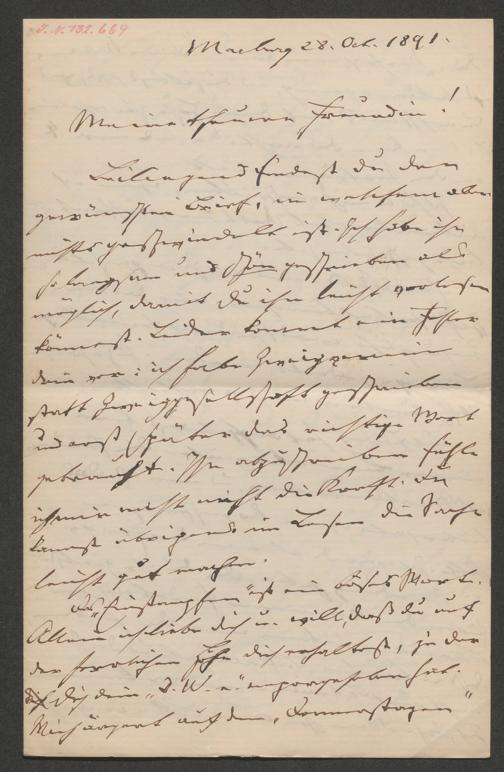 I. N. 132.669
Marburg 28. Oct. 1891.
Meine theuere Freundin!
Beiliegend findest du den
gewünschten Brief, in welchem aber
nichts geschwindelt ist. Ich habe ihn
so langsam und schön geschrieben als
möglich, damit du ihn leicht vorlesen
könnest. Leider kommt ein Fehler
drin vor: ich habe Zweigverein
statt Zweiggesellschaft geschrieben
und erst später das richtige Wort
gebraucht. Ihn abzuschreiben fühle
ich mir nicht die Kraft. Du
kannst übrigens im Lesen die Sache
leicht gut machen.
Das ist ein böses Wort.
Allein ich liebe dich u. will, daß du auf
der herrlichen Höhe dich erhaltest, zu der
dich dein „D. W. n." emporgehoben hat.
Mich ärgert auch dein „Donnerstagen"